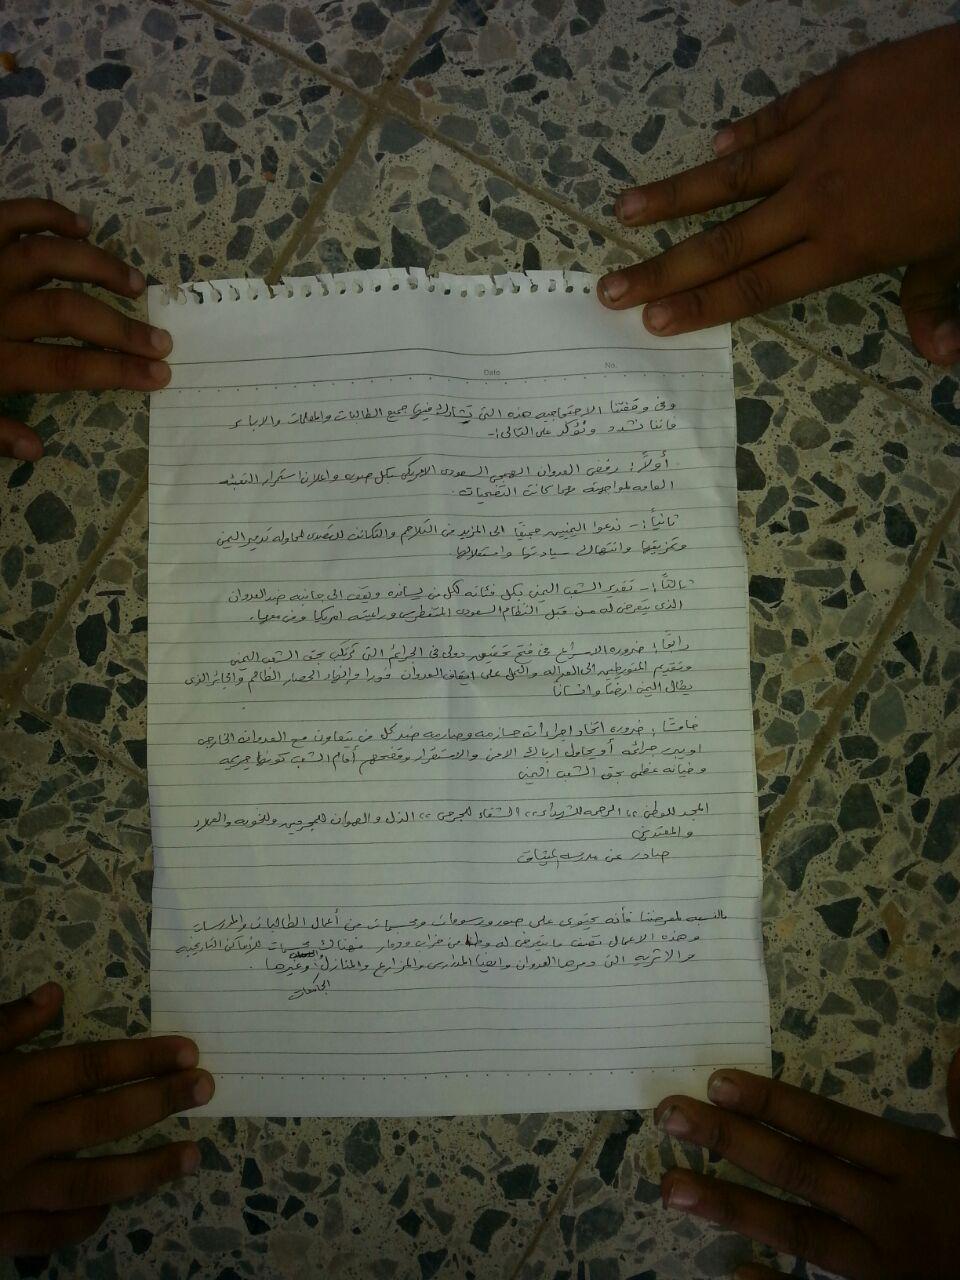 Date No.
وفي وقفتنا الاحتجاجيه هذه التي تشارك فيها جميع الطالبات والمعلمات والاباء
فاننا نشدد ونؤكد على التالي:-
أولاً: رفض العدوان الهمجي السعودي الامريكي بكل صوره واعلاننا استمرار التعبئه
العامه لمواجهته مهما كانت التضحيات.
ثانياً:- ندعوا اليمنيين جميعًا الى المزيد من التلاحم والتكاتف للتصدي لمحاوله تدمير اليمن
وتمزيقها وانتهاك سيادتها واستقلالها.
ثالثًا:- تقدير الشعب اليمني بكل فئاته لكل من يسانده ويقف الى جانبه ضد العدوان
الذي يتعرض له من قبل النظام السعودي المتغطرس وراعيته امريكا ومن معها.
رابعًا: ضروره الاسراع في فتح تحقيق دولي في الجرائم التي ترتكب بحق الشعب اليمني
وتقديم المتورطين الى العداله والعمل على ايقاف العدوان فورا وإنهاء الحصار الظالم والجائر الذي
يطال اليمن ارضًا وانسانًا
خامسًا: ضروره اتخاذ اجراءات حازمه وصارمه ضد كل من يتعاون مع العدوان الخارجي
او يبرر جرائمه أو يحاول ارباك الامن والاستقرار وفضحهم أمام الشعب كونها جريمه
وخيانه عظمى بحق الشعب اليمني
المجد للوطن،، الرحمه للشهداء،، الشفاء للجرحى،، الذل والهوان للمجرمين وللخونه والعملاء
والمعتدين
صادر عن مدرسه الميثاق
بالنسبه لمعرضنا فأنه يحتوي على صور ورسومات ومجسمات من أعمال الطالبات والمدرسات
وهذه الاعمال تصف ما يتعرض له وطننا من خراب ودمار فهناك مجسمات للاماكن التاريخيه
والاثريه التي دمرها العدوان وايضا المدارس والمزارع والمنازل وغيرها.
الجامعات